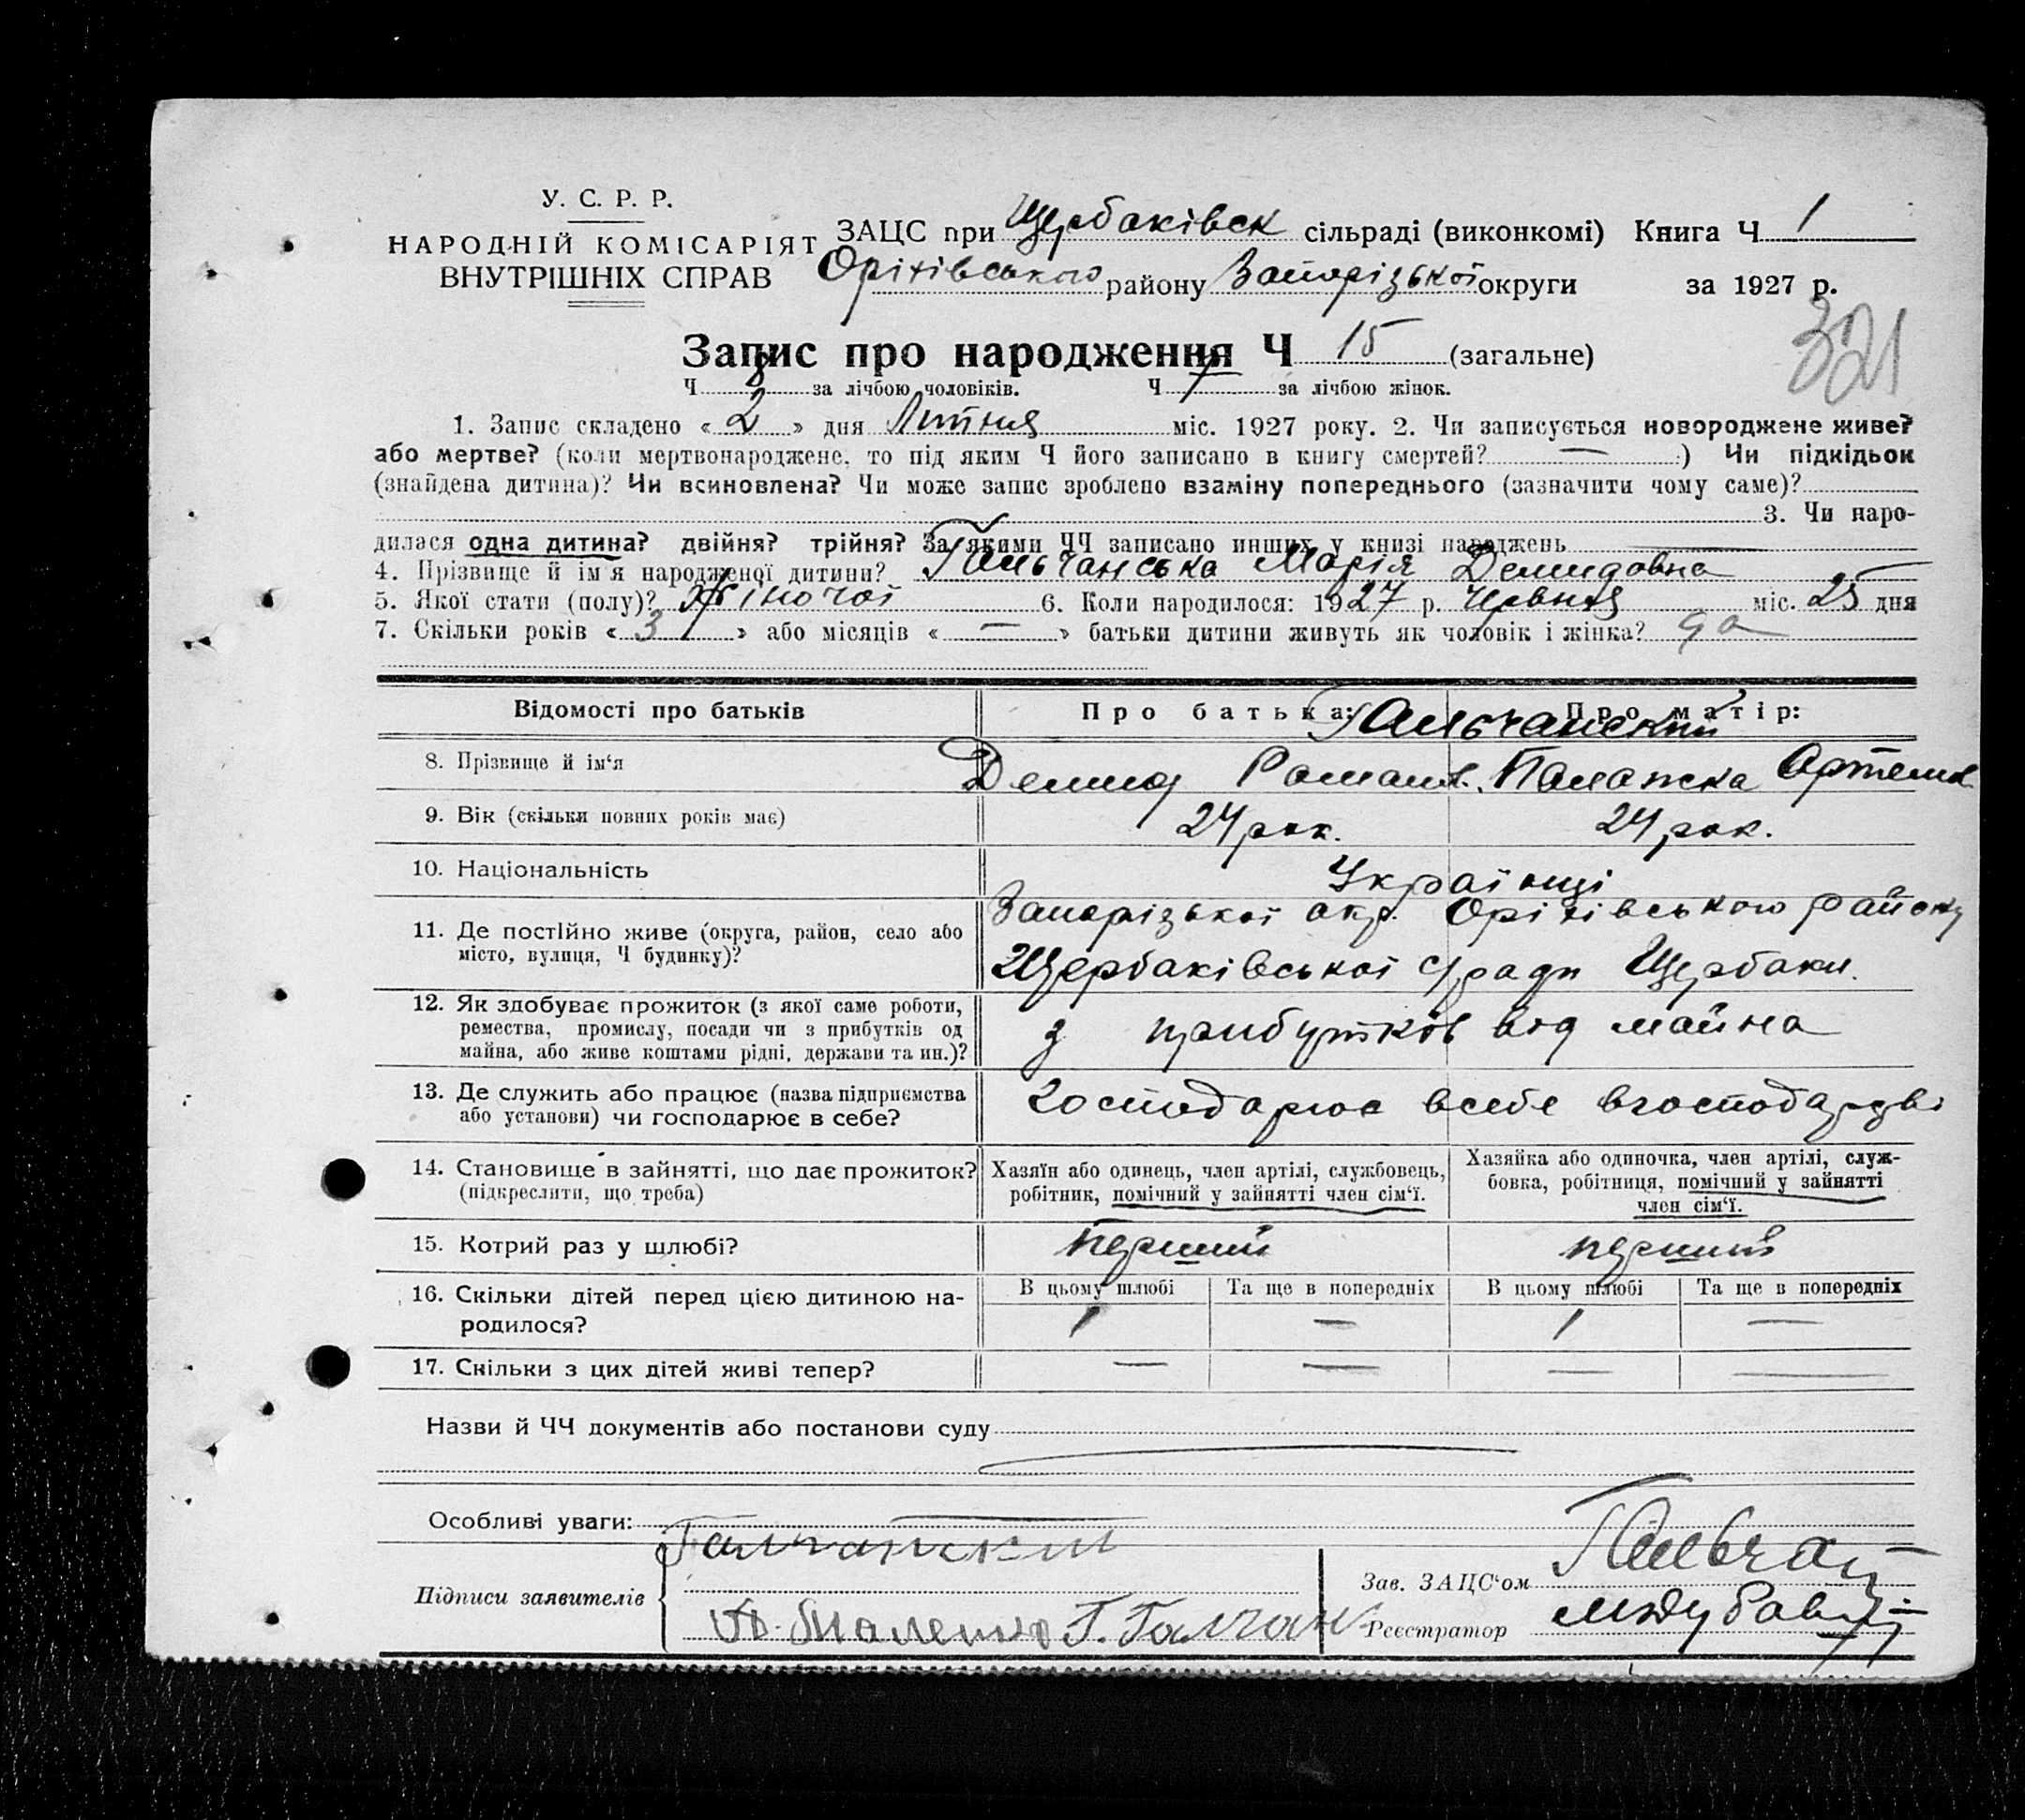 У. С. Р. Р.
НАРОДНІЙ КОМІСАРІЯТ
ВНУТРІШНІХ СПРАВ
ЗАЦС при Щербаківськ сільраді (виконкомі) Книга Ч 1
Оріхівського району Запорізької округи за 1927 р.
321
Запис про народження Ч 15 (загальне)
Ч 8 за лічбою чоловіків. Ч 7 за лічбою жінок.
1. Запис складено « 2 » дня Липня міс. 1927 року. 2. Чи записується новороджене живе?
або мертве? (коли мертвонароджене, то під яким Ч його записано в книгу смертей? — ) Чи підкідьок
(знайдена дитина)? Чи всиновлена? Чи може запис зроблено взаміну попереднього (зазначити чому саме)?
3. Чи наро-
дилася одна дитина? двійня? трійня? За якими ЧЧ записано инших у книзі народжень —
4. Прізвище й ім'я народженої дитини? Гальчанська Марія Демидовна
5. Якої стати (полу)? Жіночої 6. Коли народилося: 1927 р. Червня міс. 25 дня
7. Скільки років « 3 » або місяців « — » батьки дитини живуть як чоловік і жінка? да
Відомості про батьків Про батька: Про матір:
Гальчанский
8. Прізвище й ім'я Демид Роман. Палажка Артемов
9. Вік (скільки повних років має) 24 рок. 24 рок.
10. Національність Українці
11. Де постійно живе (округа, район, село або
місто, вулиця, Ч будинку)?
Запорізької окр. Оріхівського району
Щербаківської с/ради Щербаки.
12. Як здобуває прожиток (з якої саме роботи,
ремества, промислу, посади чи з прибутків од
майна, або живе коштами рідні, держави та ин.)?
з прибутків від майна
13. Де служить або працює (назва підприємства
або установи) чи господарює в себе?
господарює всебе вгосподарстві
14. Становище в зайнятті, що дає прожиток?
(підкреслити, що треба)
Хазяїн або одинець, член артілі, службовець,
робітник, помічний у зайнятті член сім'ї.
Хазяйка або одиночка, член артілі, служ-
бовка, робітниця, помічний у зайнятті
член сім'ї.
15. Котрий раз у шлюбі? перший перший
16. Скільки дітей перед цією дитиною на-
родилося?
В цьому шлюбі Та ще в попередніх В цьому шлюбі Та ще в попередніх
1 — 1 —
17. Скільки з цих дітей живі тепер? — — — —
Назви й ЧЧ документів або постанови суду
Особливі уваги:
Підписи заявителів
Галчанский
Г. Галчан
Зав. ЗАЦС'ом Гальчан
Реєстратор